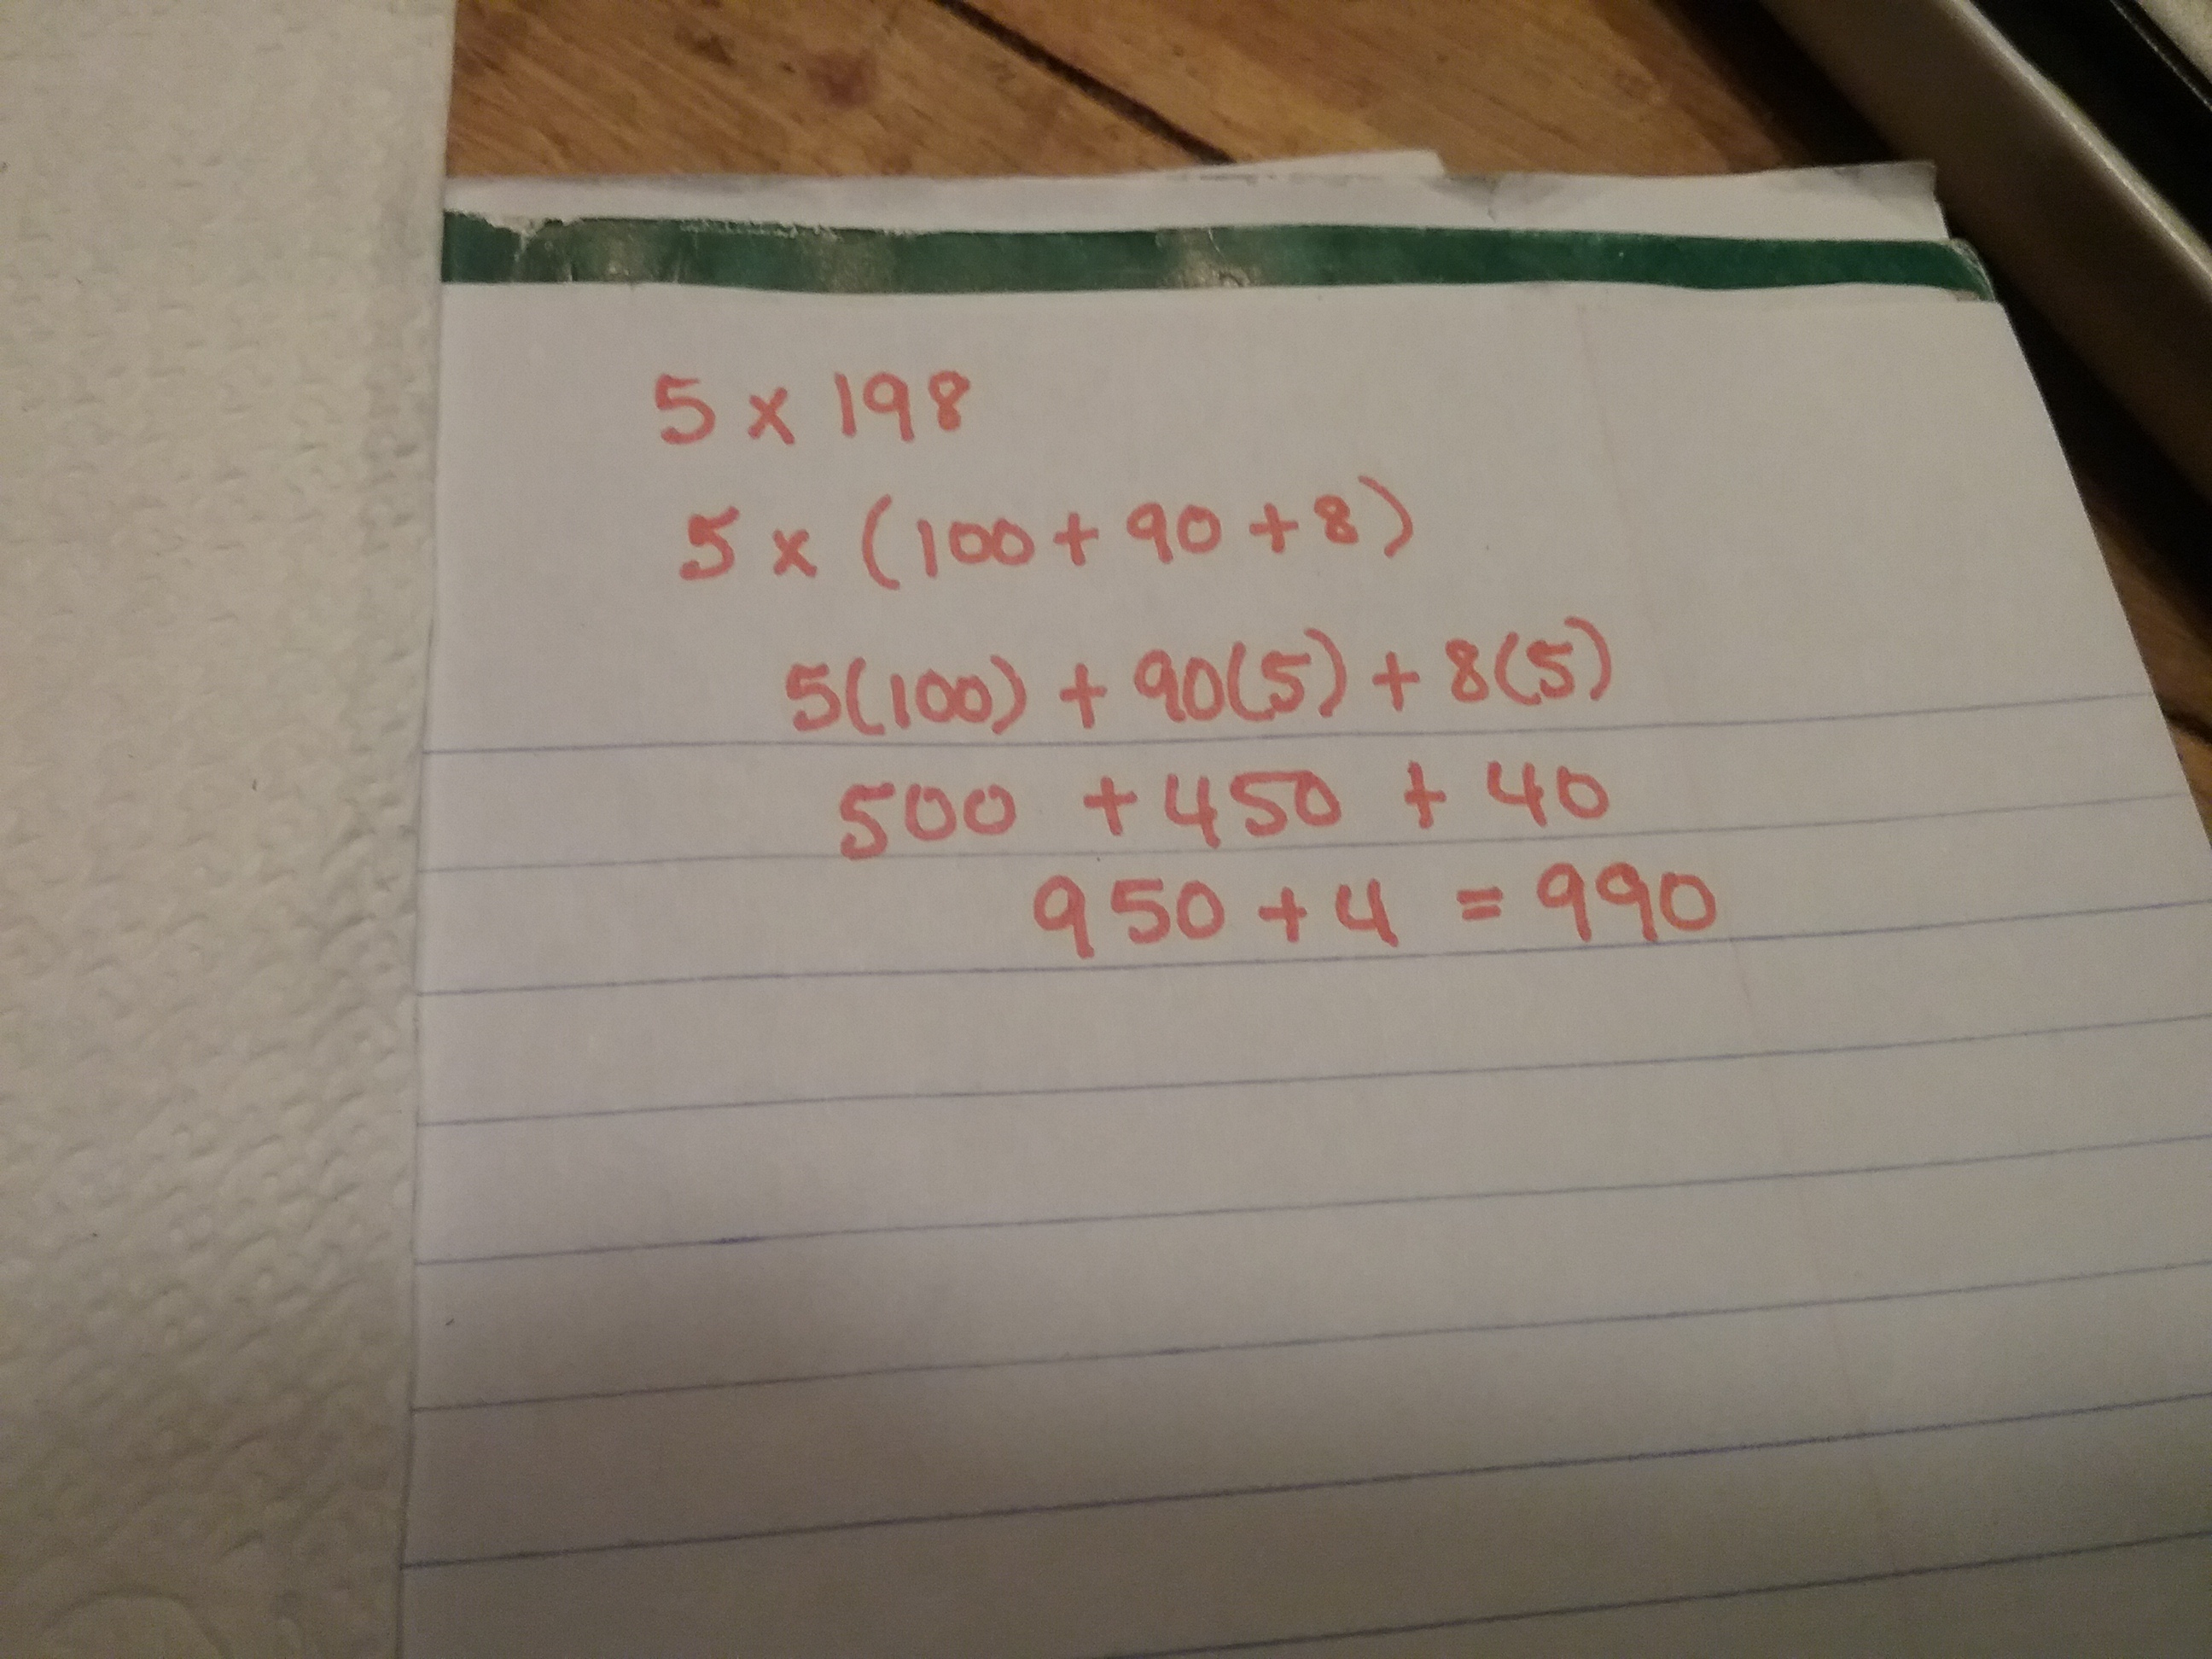 5 x 198
5 x (100 + 90 + 8)
5(100) + 90(5) + 8(5)
500 + 450 + 40
950 + 4 = 990